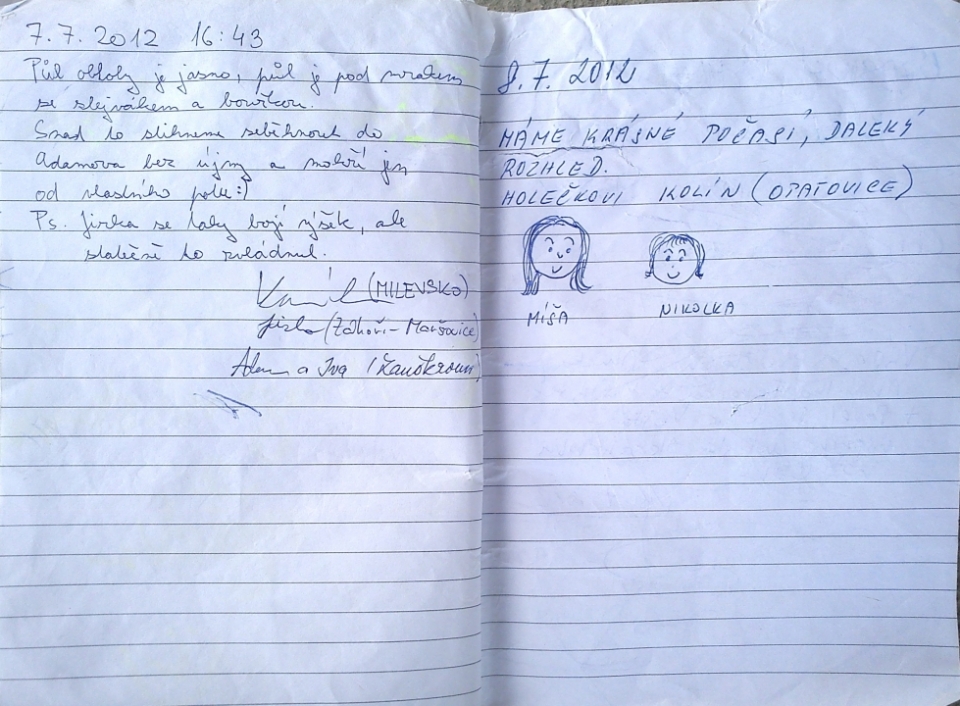 7.7.2012 16:43
Půl oblohy je jasno, půl je pod mrakem
se slejvákem a bouřkou.
Snad to stihneme seběhnout do
Adamova bez újmy a mokří jen
od vlastního potu:)
Ps. Jirka se taky bojí výšek, ale
statečně to zvládnul.
(MILEVSKO)
Jirka (Záhoří-
a Iva (Lanškroun)
8.7.2012
MÁME KRÁSNÉ POČASÍ, DALEKÝ
ROZHLED.
HOLEČKOVI KOLÍN (OPATOVICE)
MÍŠA
NIKOLKA